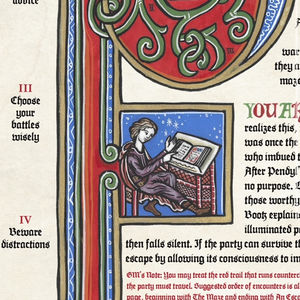 advice
III
Choose
your
battles
wisely
IV
Beware
distractions
II
III
war
they a
maz
YOU AR
realizes this,
was once the
who imbued
After Pendyl
no purpose.
those worthy
Booty explain
illuminated p
then falls silent. If the party can survive th
escape by allowing its consciousness to im
GM's Note: You may treat the red trail that runs counterc
the party must travel. Suggested order of encounters is al
page, beginning with The Maze and ending with An Esc